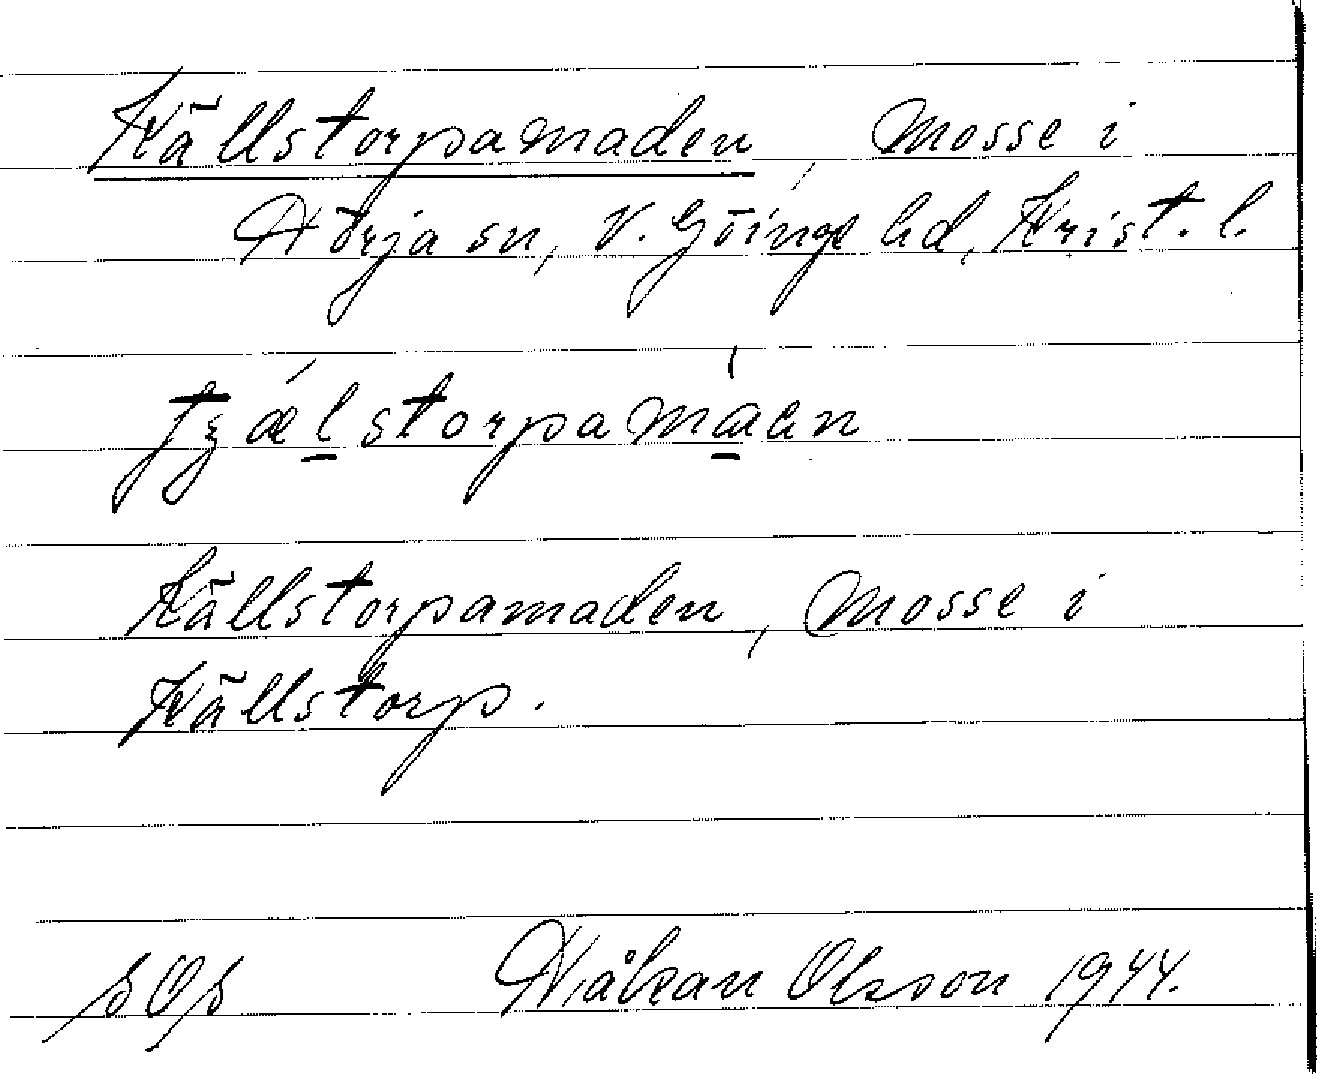 Källstorpamaden, mosse i
Nörja sn, V. Göinge hd, Krist. l.
Källstorpamaden, mosse i
Källstorp.
Håkan Olsson 1944.